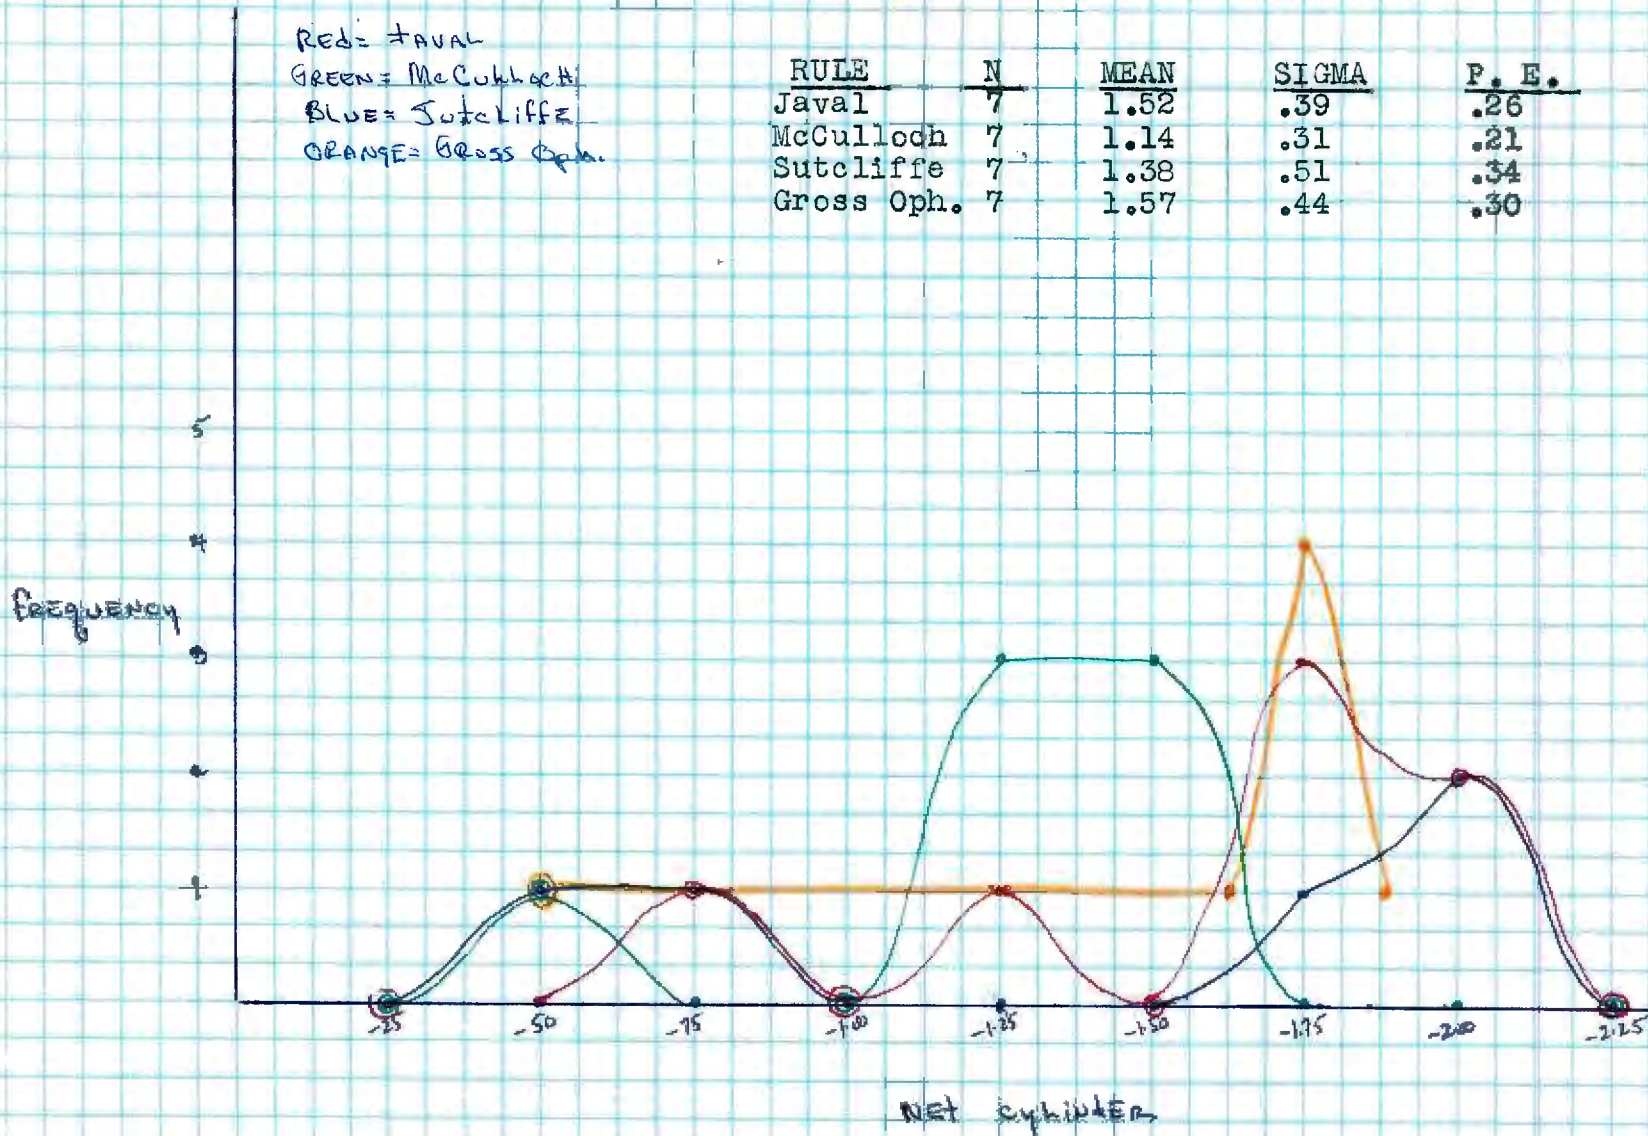 RED= JAVAL
GREEN= McCullOCH
BLUE= SutcliffE
ORANGE= GROSS Oph.
RULE N MEAN SIGMA P. E.
Javal 7 1.52 .39 .26
McCulloch 7 1.14 .31 .21
Sutcliffe 7 1.38 .51 .34
Gross Oph. 7 1.57 .44 .30
5
4
fREquENCy
3
2
1
-.25 -.50 -.75 -1.00 -1.25 -1.50 -1.75 -2.00 -2.25
NEt CyliNdER